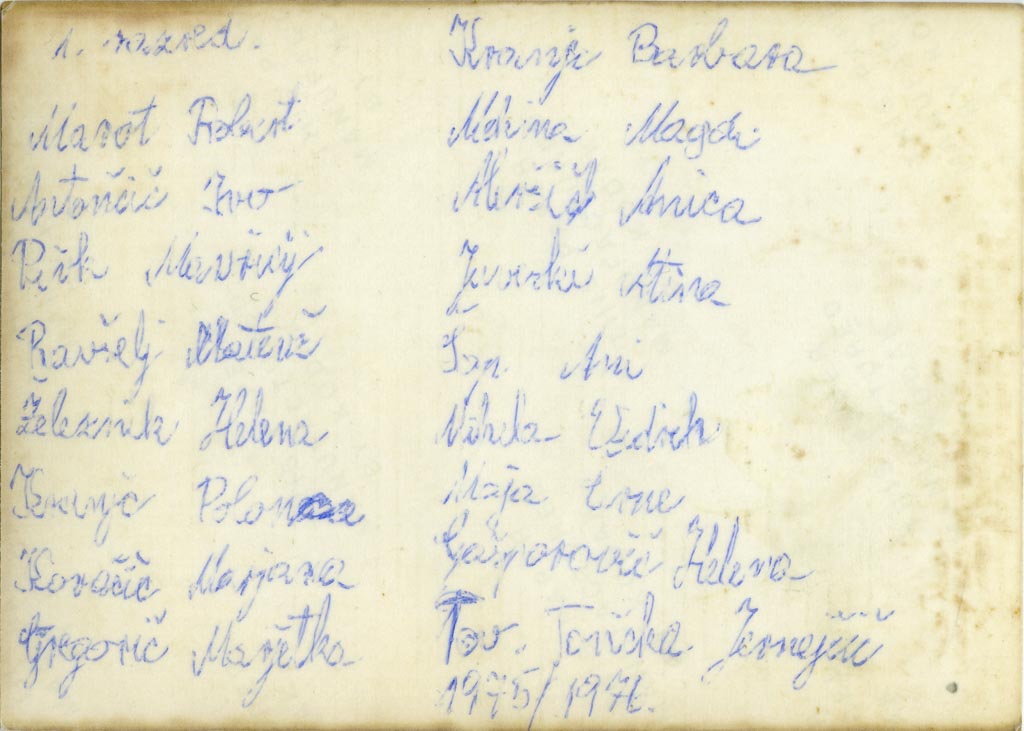 1. razred.
Marot Robert
Antončič Ivo
Petik
Ravšelj Matevž
Železnik Helena
Kranjc Polona
Kovačič Marjana
Gregorič Marjetka
Kranjc Barbara
Mekina Magda
Meršič Anica
Anina
Ani
Maja
Gašparovič Helena
Tov. Tončka Jernejčič
1975/1976.